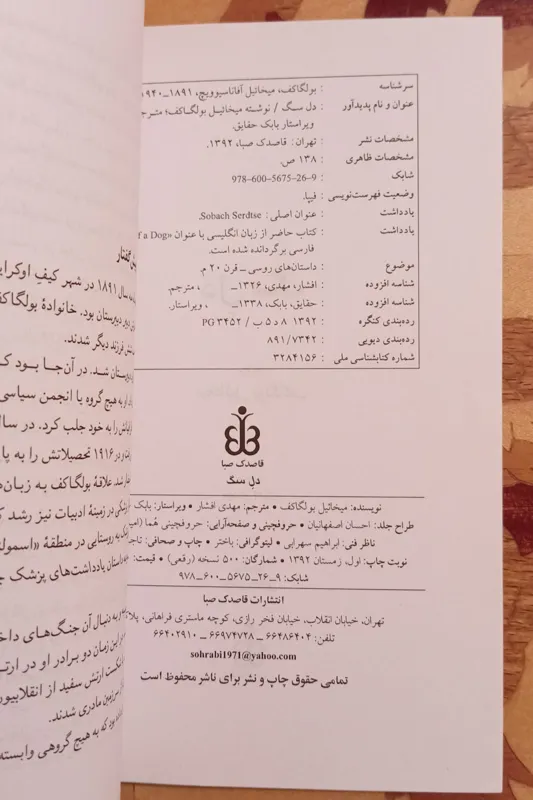 سرشناسه : بولگاکف، میخائیل آفاناسیوویچ، ۱۸۹۱ـ۱۹۴۰
عنوان و نام پدیدآور : دل سگ / نوشته میخائیل بولگاکف؛ مترج
ویراستار بابک حقایق.
مشخصات نشر : تهران: قاصدک صبا، ۱۳۹۲.
مشخصات ظاهری : ۱۳۸ ص.
شابک : 978-600-5675-26-9
وضعیت فهرست‌نویسی : فیپا.
یادداشت : عنوان اصلی: Sobach Serdtse.
یادداشت : کتاب حاضر از زبان انگلیسی با عنوان «f a Dog
فارسی برگردانده شده است.
موضوع : داستان‌های روسی ـ قرن ۲۰ م.
شناسه افزوده : افشار، مهدی، ۱۳۲۶ـ ، مترجم.
شناسه افزوده : حقایق، بابک، ۱۳۳۸ـ ، ویراستار.
رده‌بندی کنگره : ۱۳۹۲ ۸ د ۵ ب / PG ۳۴۵۲
رده‌بندی دیویی : ۸۹۱/۷۳۴۲
شماره کتابشناسی ملی : ۳۲۸۴۱۵۶
قاصدک صبا
دل سگ
نویسنده: میخائیل بولگاکف • مترجم: مهدی افشار • ویراستار: بابک
طراح جلد: احسان اصفهانیان • حروفچینی و صفحه‌آرایی: حروفچینی هُما (امید
ناظر فنی: ابراهیم سهرابی • لیتوگرافی: باختر • چاپ و صحافی: تاجد
نوبت چاپ: اول، زمستان ۱۳۹۲ • شمارگان: ۵۰۰ نسخه (رقعی) • قیمت:
شابک: ۹ـ۲۶ـ۵۶۷۵ـ۶۰۰ـ۹۷۸
انتشارات قاصدک صبا
تهران، خیابان انقلاب، خیابان فخر رازی، کوچه ماستری فراهانی، پلا
تلفن: ۶۶۴۸۶۴۰۴ ـ ۶۶۹۷۴۷۲۸ ـ ۶۶۴۰۲۹۱۰
sohrabi1971@yahoo.com
تمامی حقوق چاپ و نشر برای ناشر محفوظ است
گفتار
سال ۱۸۹۱ در شهر کیفِ اوکرای
دبیرستان بود. خانوادهٔ بولگاکف
فرزند دیگر شدند.
شد. در آن‌جا بود ک
او به هیچ گروه یا انجمن سیاسی
را به خود جلب کرد. در سال
و در ۱۹۱۶ تحصیلاتش را به پا
شد. علاقهٔ بولگاکف به زبان‌ه
در زمینهٔ ادبیات نیز رشد ک
به روستایی در منطقهٔ «اسمول
داستان یادداشت‌های پزشک ج
و به دنبال آن جنگ‌های داخ
این زمان دو برادر او در ارت
شکست ارتش سفید از انقلابیون
سرزمین مادری شدند.
بود که به هیچ گروهی وابسته